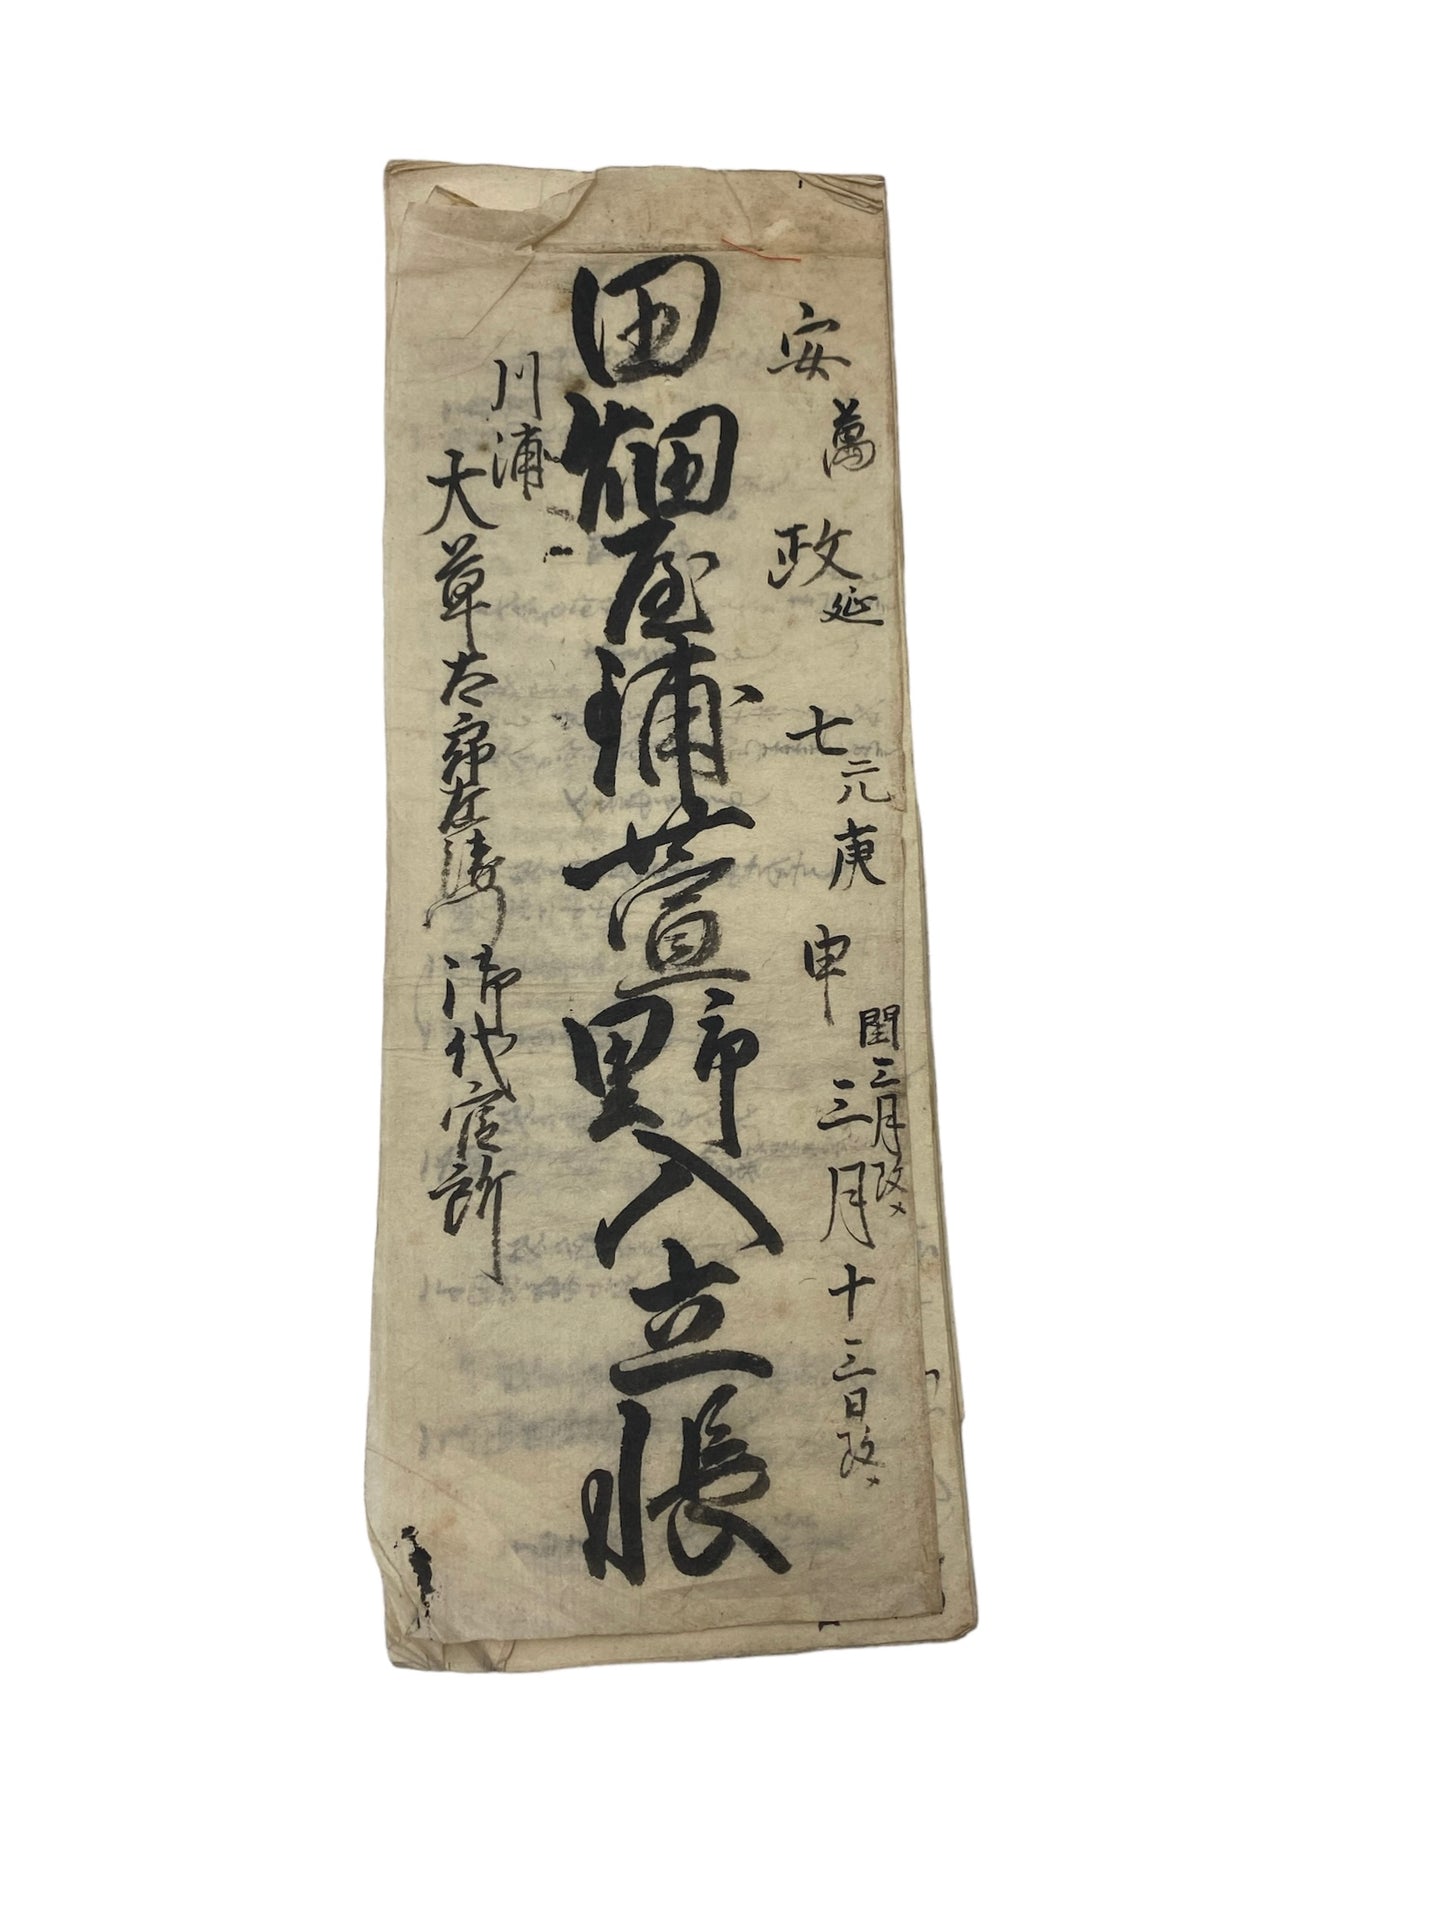 萬延元 閏三月改
安政七庚申三月十三日改
田畑屋鋪萱野入立帳
川浦
大草太郎左衛門御代官所